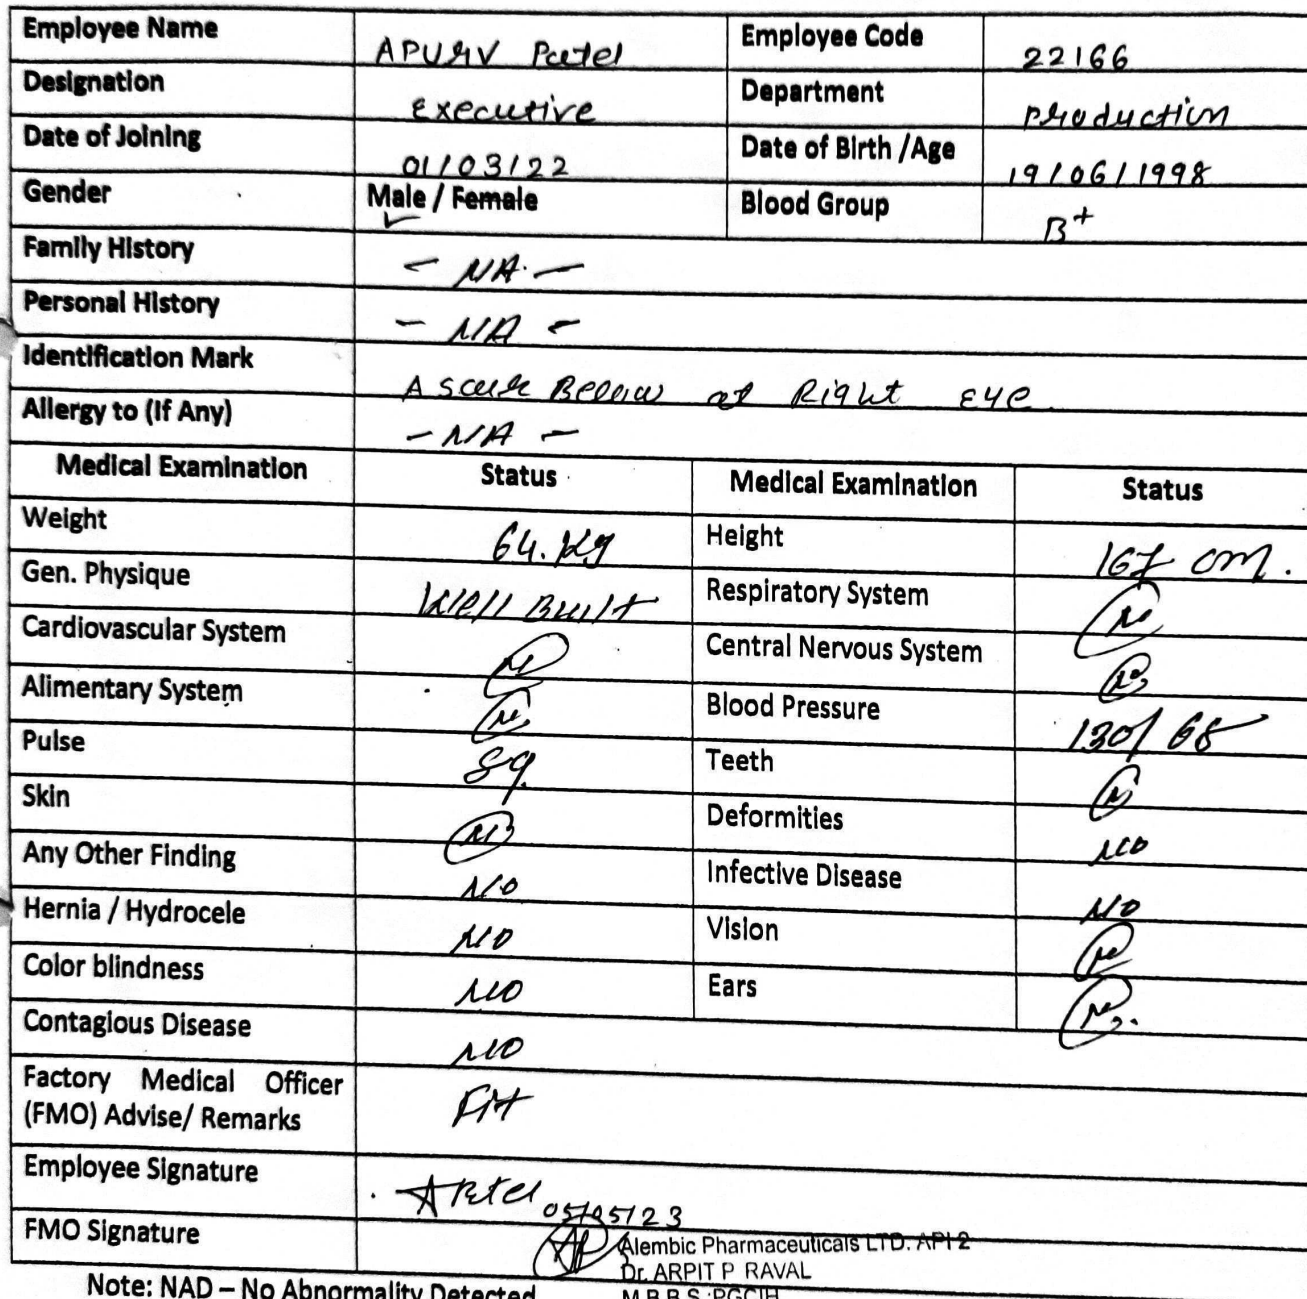 Employee Name APURV Patel Employee Code 22166
Designation Executive Department Production
Date of Joining 01/03/22 Date of Birth /Age 19/06/1998
Gender Male / Female Blood Group B+
Family History - NA. -
Personal History - NA -
Identification Mark A Scar Bellow at Right Eye
Allergy to (If Any) - NA -
Medical Examination Status Medical Examination Status
Weight 64. Kg Height 167 cm.
Gen. Physique Well Built Respiratory System
Cardiovascular System Central Nervous System
Alimentary System Blood Pressure 130/68
Pulse 89 Teeth
Skin Deformities NO
Any Other Finding NO Infective Disease NO
Hernia / Hydrocele NO Vision
Color blindness NO Ears
Contagious Disease NO
Factory Medical Officer Fit
(FMO) Advise/ Remarks
Employee Signature APatel 05/05/23
FMO Signature Alembic Pharmaceuticals LTD. API 2
Dr. ARPIT P RAVAL
Note: NAD – No Abnormality Detected M.B.B.S. PGCIH